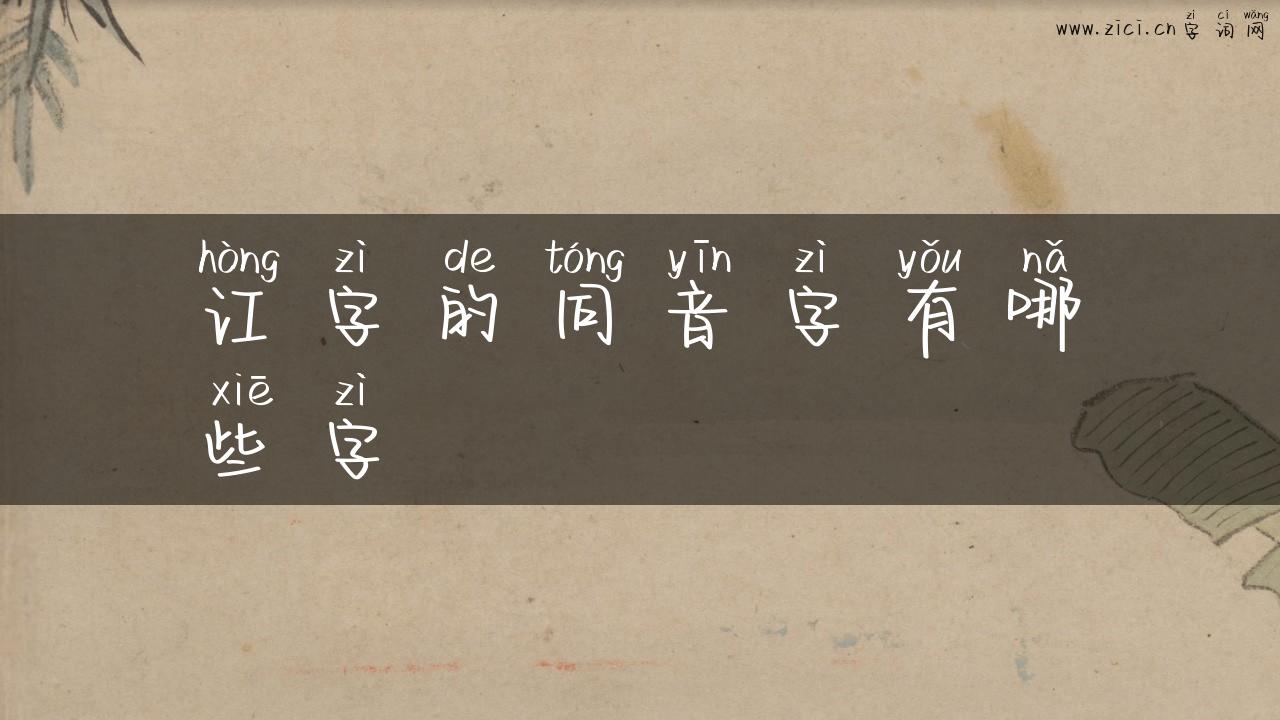 zì cí wǎng
www.zici.cn 字词网
hòng zì de tóng yīn zì yǒu nǎ
讧字的同音字有哪
xiē zì
些字